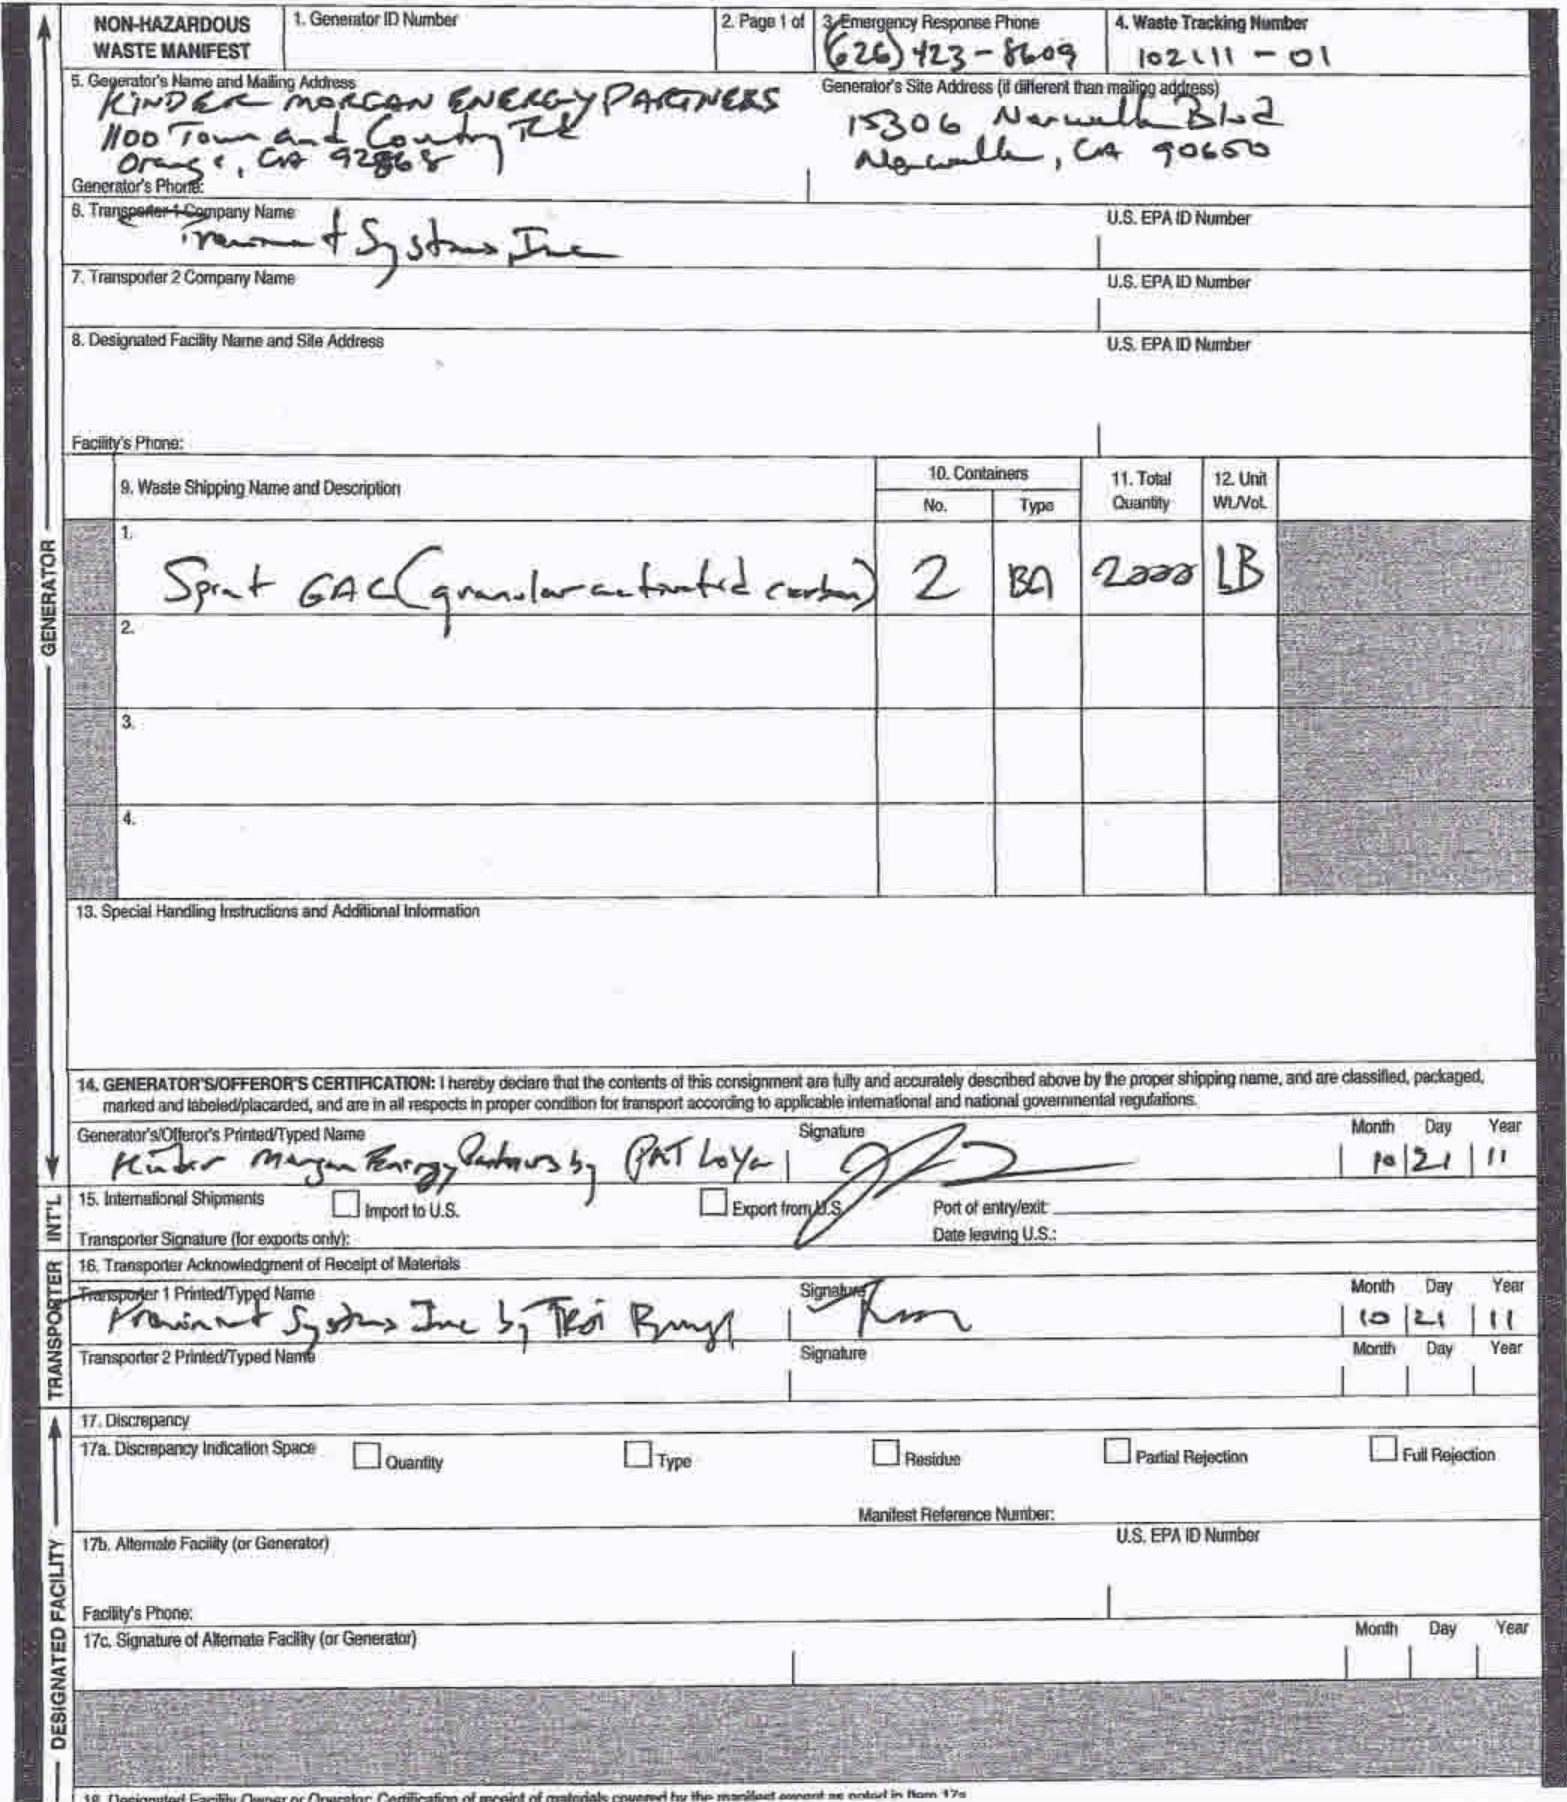 NON-HAZARDOUS WASTE MANIFEST
1. Generator ID Number
2. Page 1 of
3. Emergency Response Phone
(626) 423-8609
4. Waste Tracking Number
102111-01
5. Generator's Name and Mailing Address
KINDER MORGAN ENERGY PARTNERS
1100 Town and Country Rd
Orange, CA 92868
Generator's Site Address (if different than mailing address)
15306 Norwalk Blvd
Norwalk, CA 90650
Generator's Phone:
6. Transporter 1 Company Name
U.S. EPA ID Number
Systems, Inc
7. Transporter 2 Company Name
U.S. EPA ID Number
8. Designated Facility Name and Site Address
U.S. EPA ID Number
Facility's Phone:
9. Waste Shipping Name and Description
10. Containers
No.
Type
11. Total Quantity
12. Unit Wt./Vol.
1.
Spent GAC (granular activated carbon) 2 BA 2000 LB
2.
3.
4.
13. Special Handling Instructions and Additional Information
14. GENERATOR'S/OFFEROR'S CERTIFICATION: I hereby declare that the contents of this consignment are fully and accurately described above by the proper shipping name, and are classified, packaged,
marked and labeled/placarded, and are in all respects in proper condition for transport according to applicable international and national governmental regulations.
Generator's/Offeror's Printed/Typed Name
Signature
Month Day Year
Kinder Morgan Energy Partners by PAT Loya
10 21 11
15. International Shipments
Import to U.S.
Export from U.S.
Port of entry/exit:
Transporter Signature (for exports only):
Date leaving U.S.:
16. Transporter Acknowledgment of Receipt of Materials
Transporter 1 Printed/Typed Name
Signature
Month Day Year
Systems Inc by
10 21 11
Transporter 2 Printed/Typed Name
Signature
Month Day Year
17. Discrepancy
17a. Discrepancy Indication Space
Quantity
Type
Residue
Partial Rejection
Full Rejection
Manifest Reference Number:
17b. Alternate Facility (or Generator)
U.S. EPA ID Number
Facility's Phone:
17c. Signature of Alternate Facility (or Generator)
Month Day Year
18. Designated Facility Owner or Operator: Certification of receipt of materials covered by the manifest except as noted in Item 17a
GENERATOR
INT'L
TRANSPORTER
DESIGNATED FACILITY